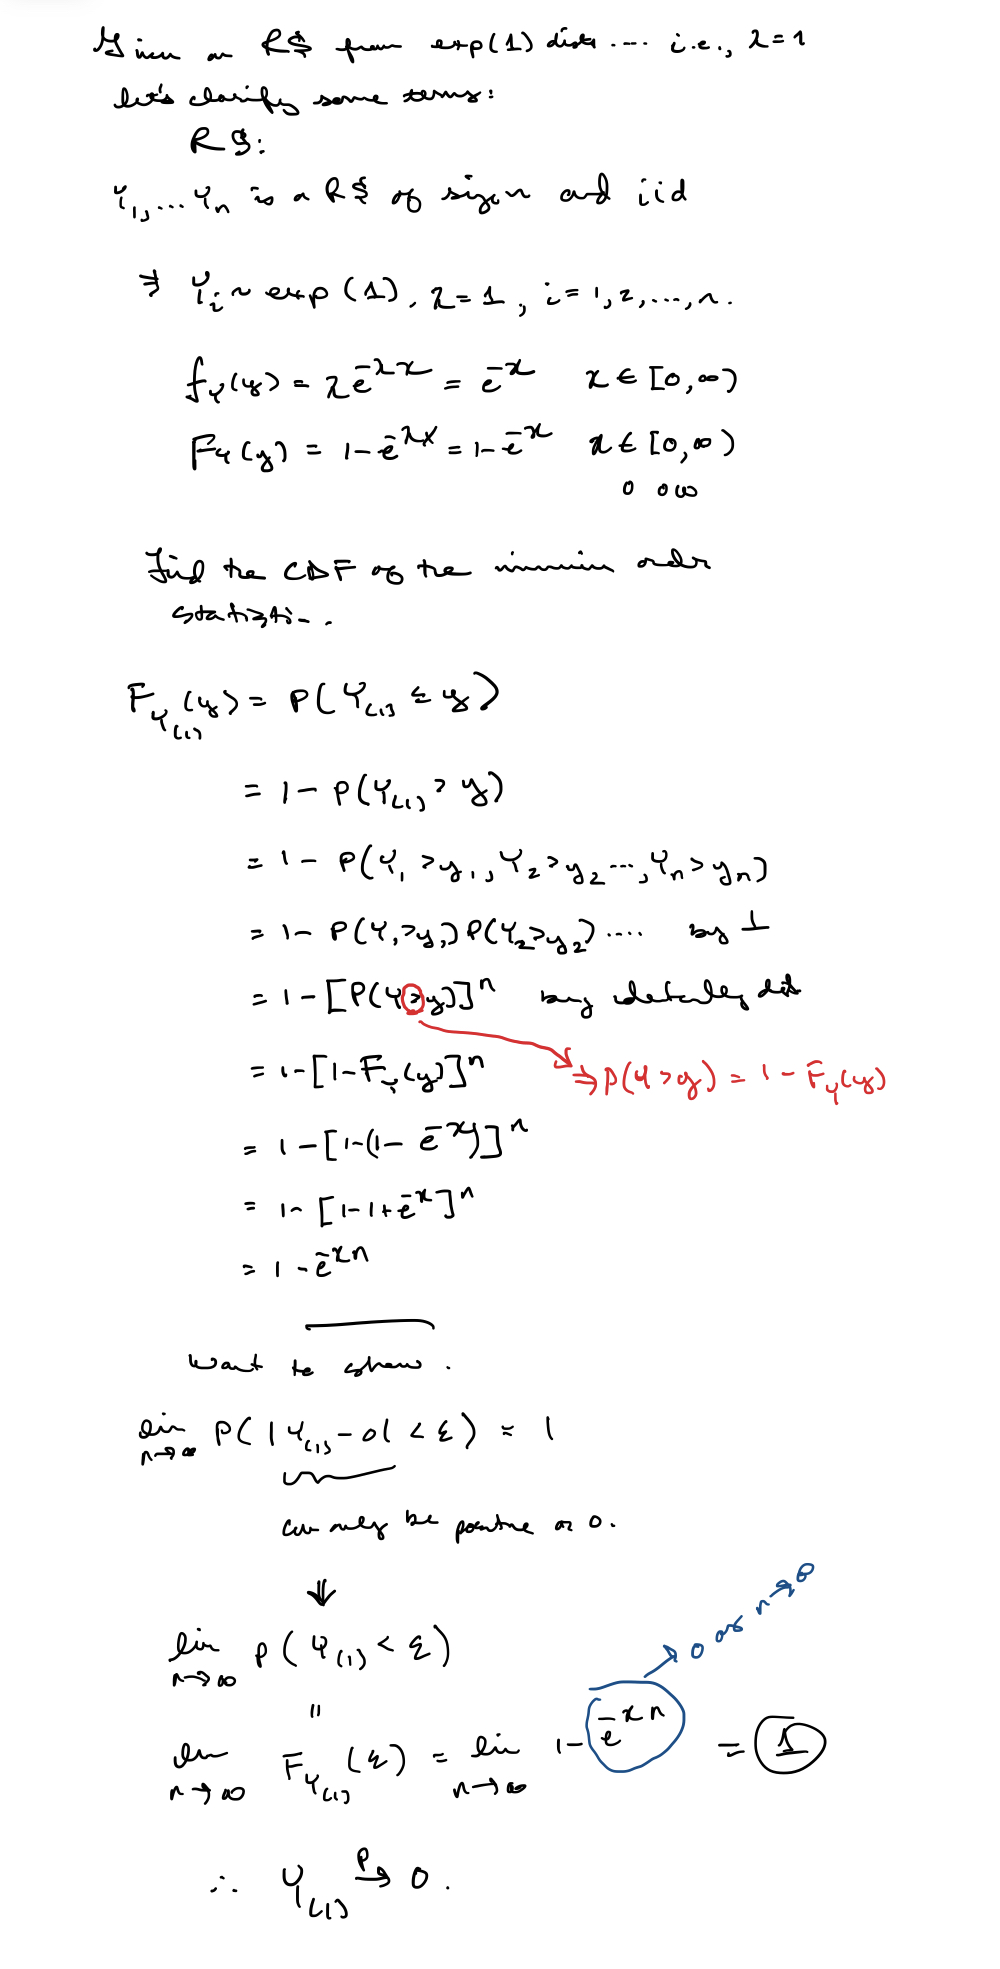 Given an RS from exp(1) distr .... i.e., λ=1
let's clarify some terms:
RS:
Y₁,...Yₙ is a RS of size n and iid
⇒ Yᵢ ~ exp(1), λ=1, i=1,2,...,n.
f_Y(y) = λe^{-λx} = e^{-x} x ∈ [0,∞)
F_Y(y) = 1-e^{-λx} = 1-e^{-x} x ∈ [0,∞)
0 ∞
Find the CDF of the minimum order
statistic.
F_{Y_{(1)}}(y) = P(Y_{(1)} ≤ y)
= 1 - P(Y_{(1)} > y)
= 1 - P(Y₁ > y₁, Y₂ > y₂ ..., Yₙ > yₙ)
= 1 - P(Y₁>y₁) P(Y₂>y₂) .... by ⊥
= 1 - [P(Y>y)]ⁿ by identically dist
= 1-[1-F_Y(y)]ⁿ ⇒ P(Y>y) = 1 - F_Y(y)
= 1 - [1-(1- e^{-x})]ⁿ
= 1- [1-1+e^{-x}]ⁿ
= 1 - e^{-xn}
want to show.
lim_{n→∞} P(|Y_{(1)} - 0| < ε) = 1
can only be positive or 0.
⇓
lim_{n→∞} P(Y_{(1)} < ε)
=
lim_{n→∞} F_{Y_{(1)}}(ε) = lim_{n→∞} 1- e^{-xn} = 1
→ 0 as n→∞
∴ Y_{(1)} →ᴾ 0.